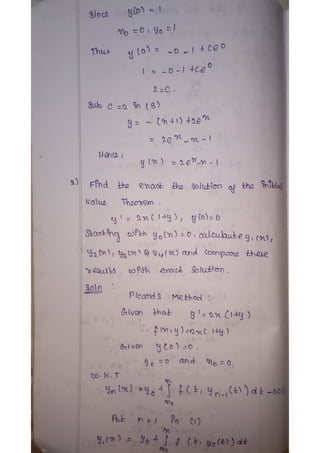 Since y(0) = 1
x₀ = 0, y₀ = 1
Thus y(0) = -0-1+Ce⁰
1 = -0-1+Ce⁰
2 = C.
Sub C = 2 in (B)
y = -(x+1)+2eˣ
= 2eˣ-x-1
Hence,
y(x) = 2eˣ-x-1.
2) Find the enact the solution of the Initial
value Theorem.
y' = 2x(1+y), y(0)=0
Starting with y₀(x) = 0. calculate y₁(x),
y₂(x), y₃(x) & y₄(x) and compare these
results with enact solution.
Soln :
Picards Method :
Given that y' = 2x(1+y)
∴ f(x,y) = 2x(1+y)
Given y(0) = 0
y₀ = 0 and x₀ = 0
W.K.T
yₙ(x) = y₀ + ∫ₓ₀ˣ f(t, yₙ₋₁(t)) dt
Put n = 1 in (1)
y₁(x) = y₀ + ∫ₓ₀ˣ f(t, y₀(t)) dt